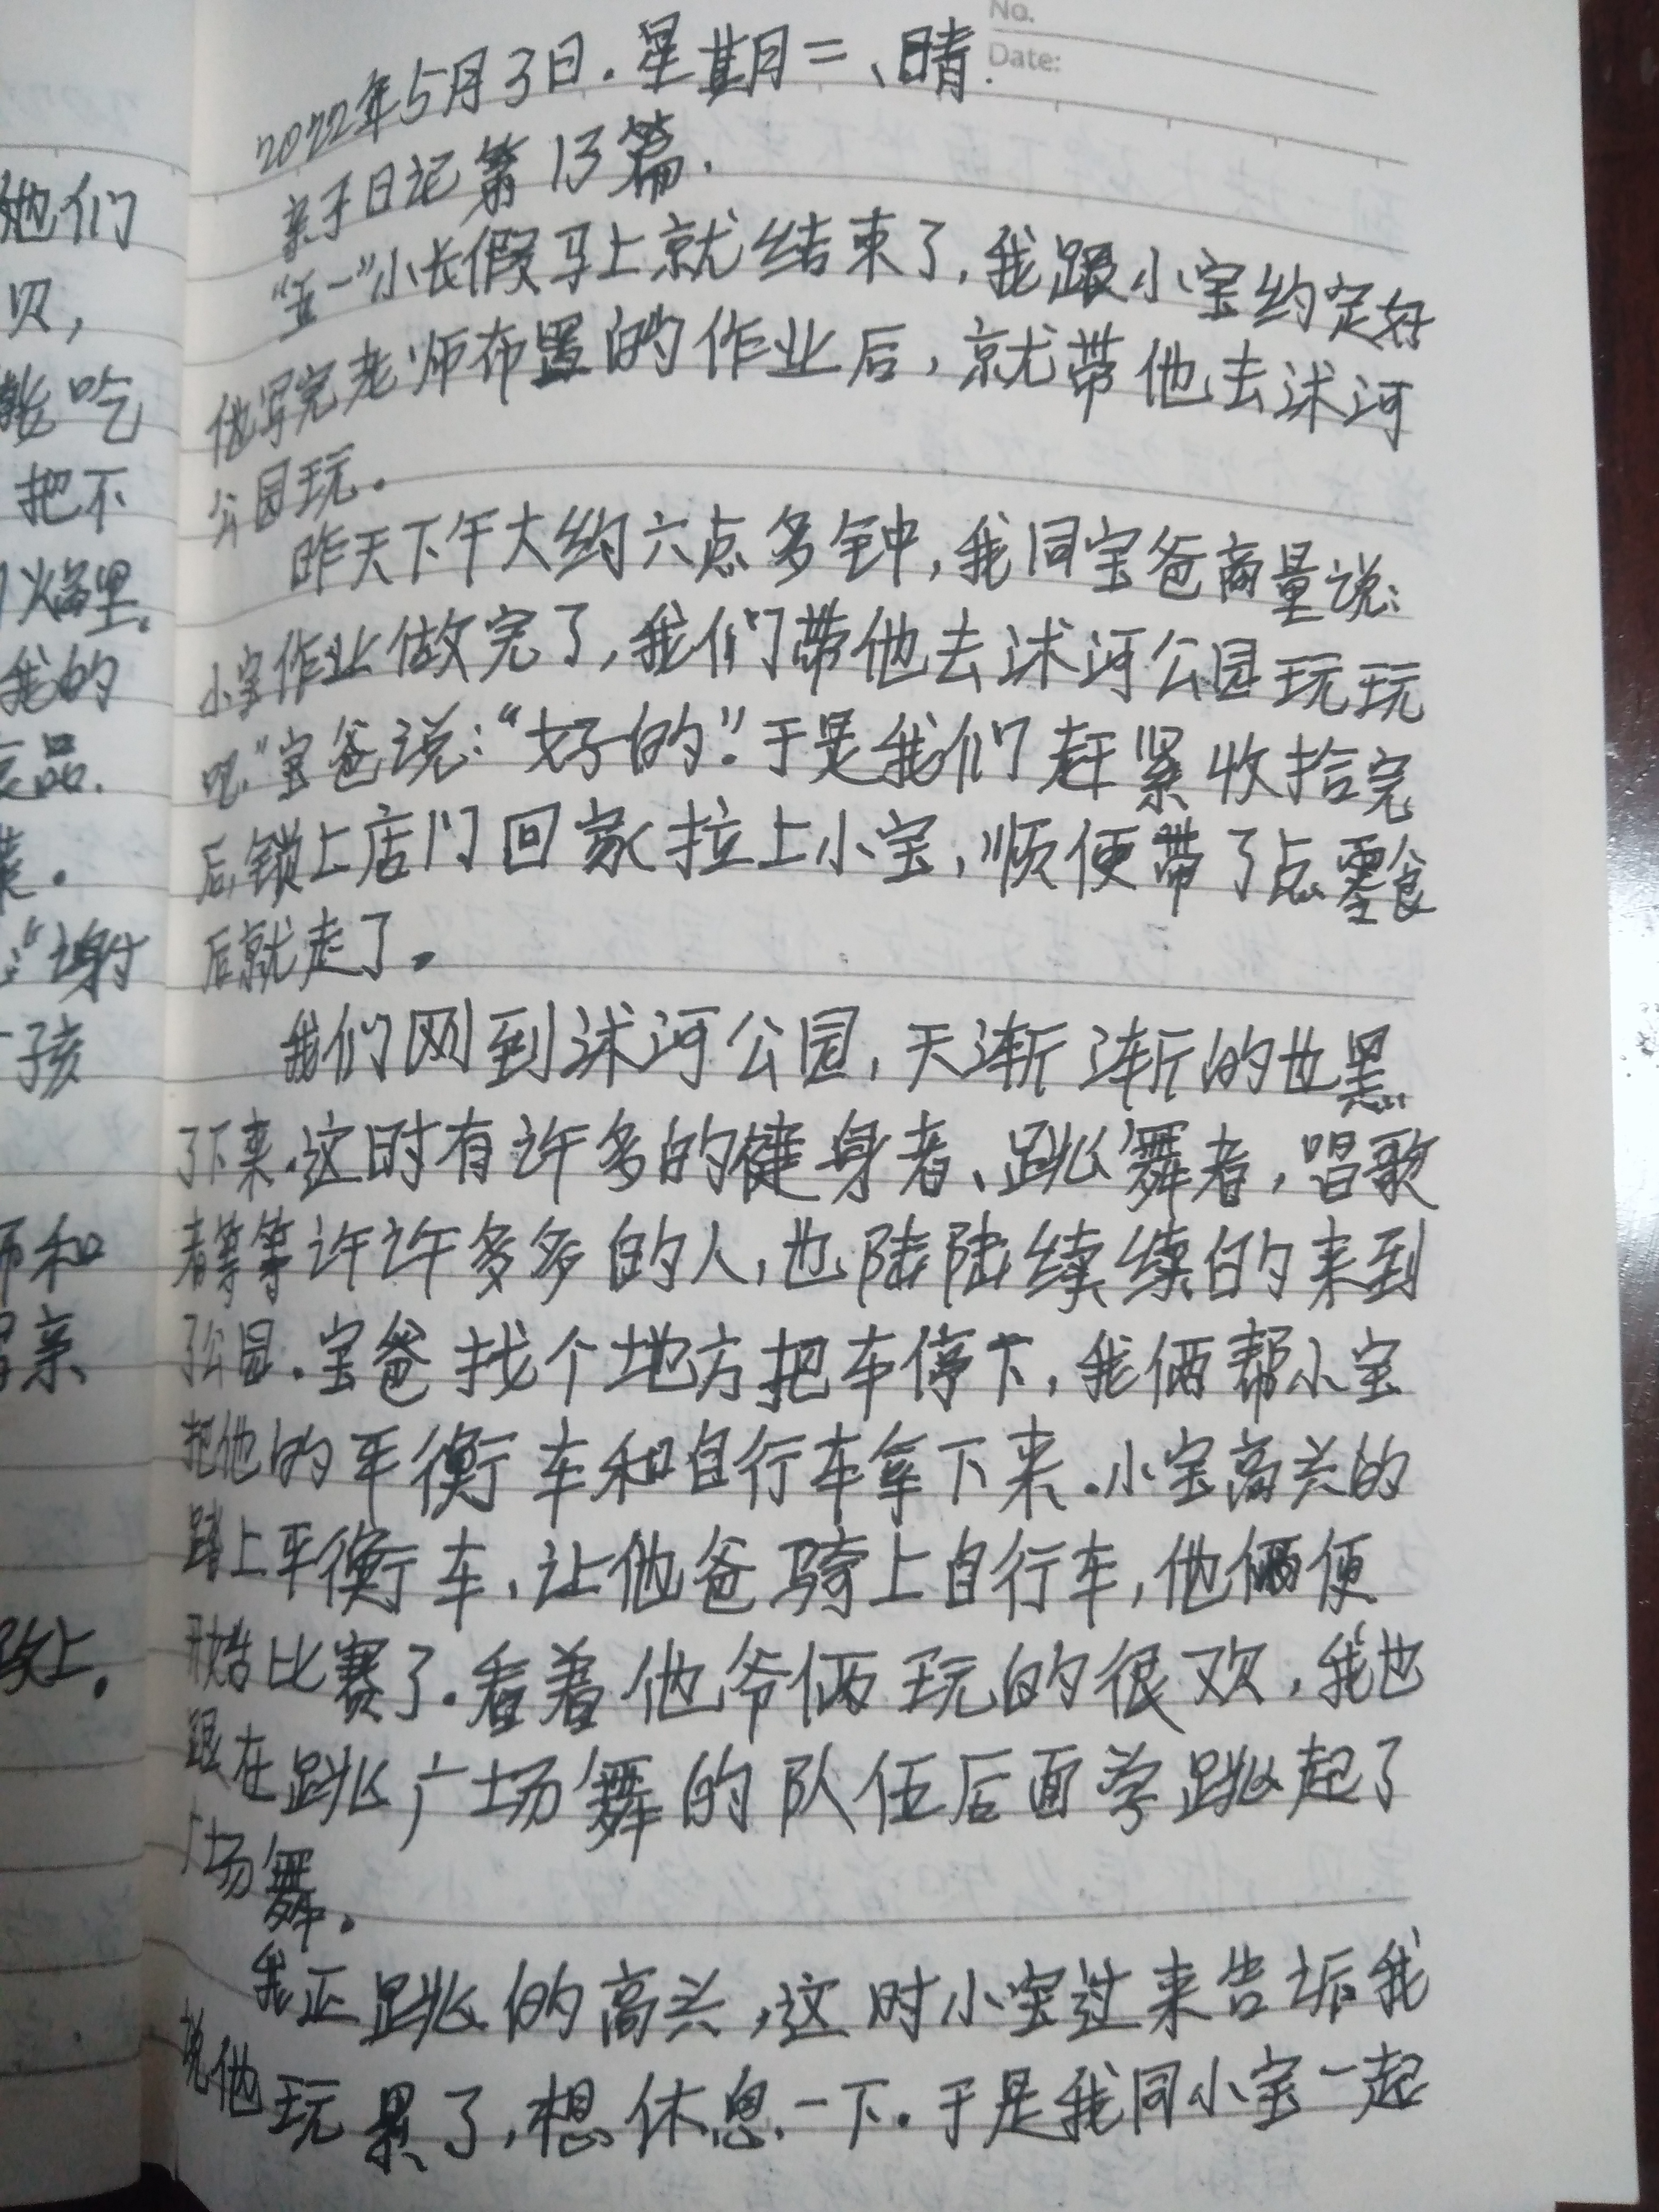 No.
Date:
2022年5月3日.星期二、晴.
亲子日记第13篇.
"五一"小长假马上就结束了,我跟小宝约定好
他写完老师布置的作业后,就带他去沭河
公园玩.
昨天下午大约六点多钟,我同宝爸商量说:
小宝作业做完了,我们带他去沭河公园玩玩
吧."宝爸说:"好的".于是我们赶紧收拾完
后,锁上店门回家拉上小宝,顺便带了点零食
后就走了。
我们刚到沭河公园,天渐渐的也黑
了下来.这时有许多的健身者、跳舞者,唱歌
者等等许许多多的人,也陆陆续续的来到
了公园.宝爸找个地方把车停下,我俩帮小宝
把他的平衡车和自行车拿下来.小宝高兴的
踏上平衡车,让他爸骑上自行车,他俩便
开始比赛了.看着他爷俩玩的很欢,我也
跟在跳广场舞的队伍后面学跳起了
广场舞。
我正跳的高兴,这时小宝过来告诉我
说他玩累了,想休息一下.于是我同小宝一起
她们
贝,
吃
把不
锅里.
我的
品.
.
:"谢
子孩
师和
亲
上.